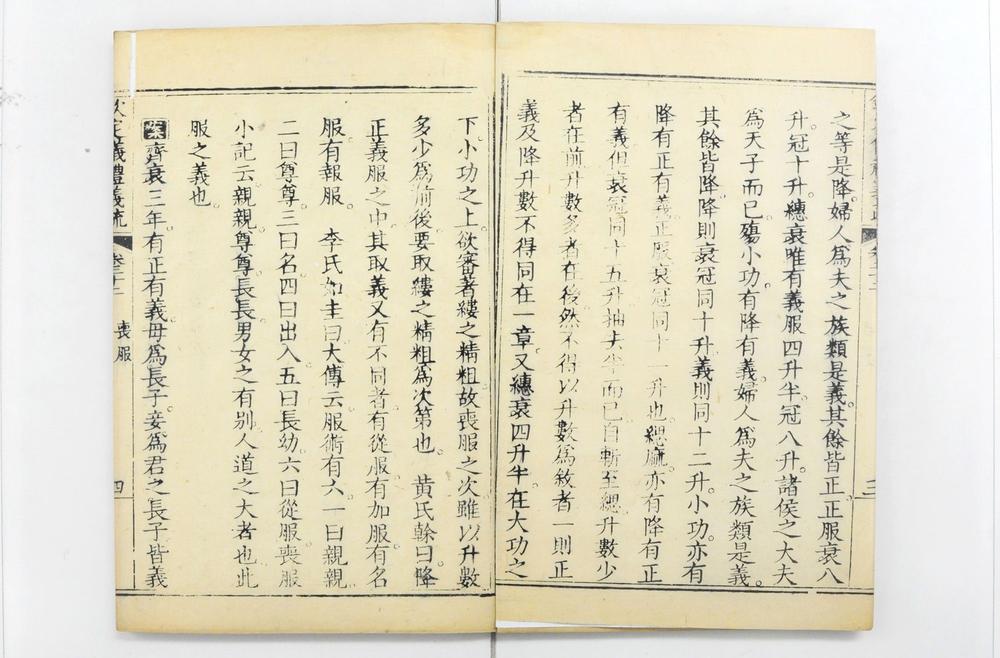 之等是降婦人爲夫之族類是義其餘皆正正服衰八
升冠十升繐衰唯有義服四升半冠八升諸侯之大夫
爲天子而已殤小功有降有義婦人爲夫之族類是義
其餘皆降降則衰冠同十升義則同十二升小功亦有
降有正有義正服衰冠同十一升也緦麻亦有降有正
有義但衰冠同十五升抽去半而已自斬至緦升數少
者在前升數多者在後然不得以升數爲敘者一則正
義及降升數不得同在一章又繐衰四升半在大功之
下小功之上欲審著縷之精粗故喪服之次雖以升數
多少爲前後要取縷之精粗爲次第也 黄氏榦曰降
正義服之中其取義又有不同者有從服有加服有名
服有報服 李氏如圭曰大傳云服術有六一曰親親
二曰尊尊三曰名四曰出入五曰長幼六曰從服喪服
小記云親親尊尊長長男女之有别人道之大者也此
服之義也
案齊衰三年有正有義毋爲長子妾爲君之長子皆義
欽定儀禮義疏 卷二十二 喪服 四